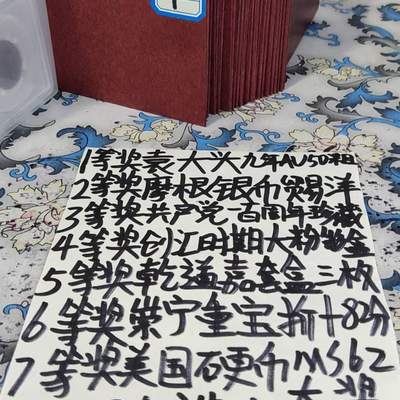 1等奖袁大头九年AU50粗
2等奖摩根银币贸易洋
3等奖共产党百周年珍藏
4等奖创江时期大粉金
5等奖乾道嘉套盒三板
6等奖崇宁重宝折十82分
7等奖美国硬币MS62